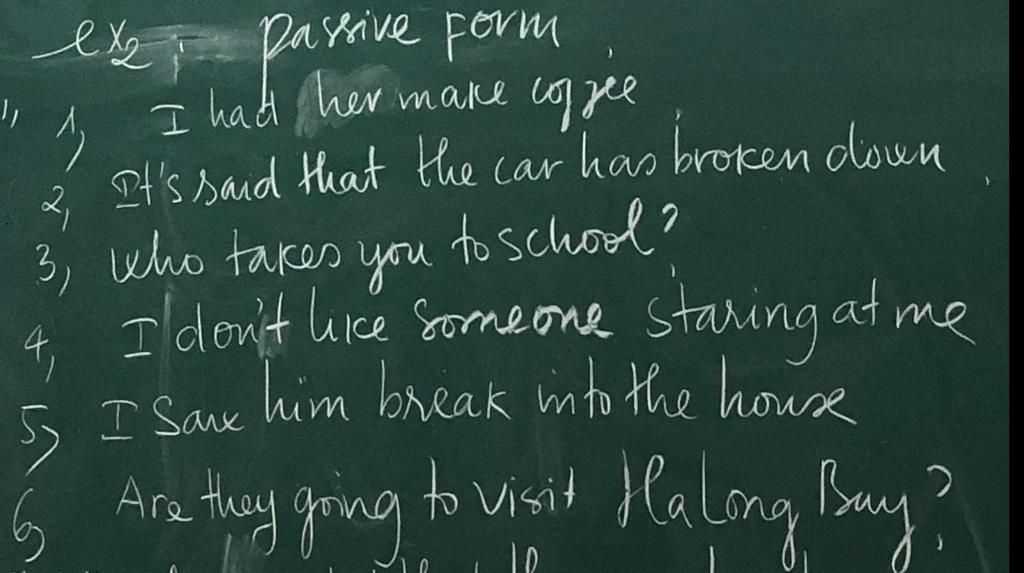 ex2: passive form
1, I had her make coffee
2, It's said that the car has broken down
3, who takes you to school?
4, I don't like someone staring at me
5, I saw him break into the house
6, Are they going to visit Ha Long Bay?